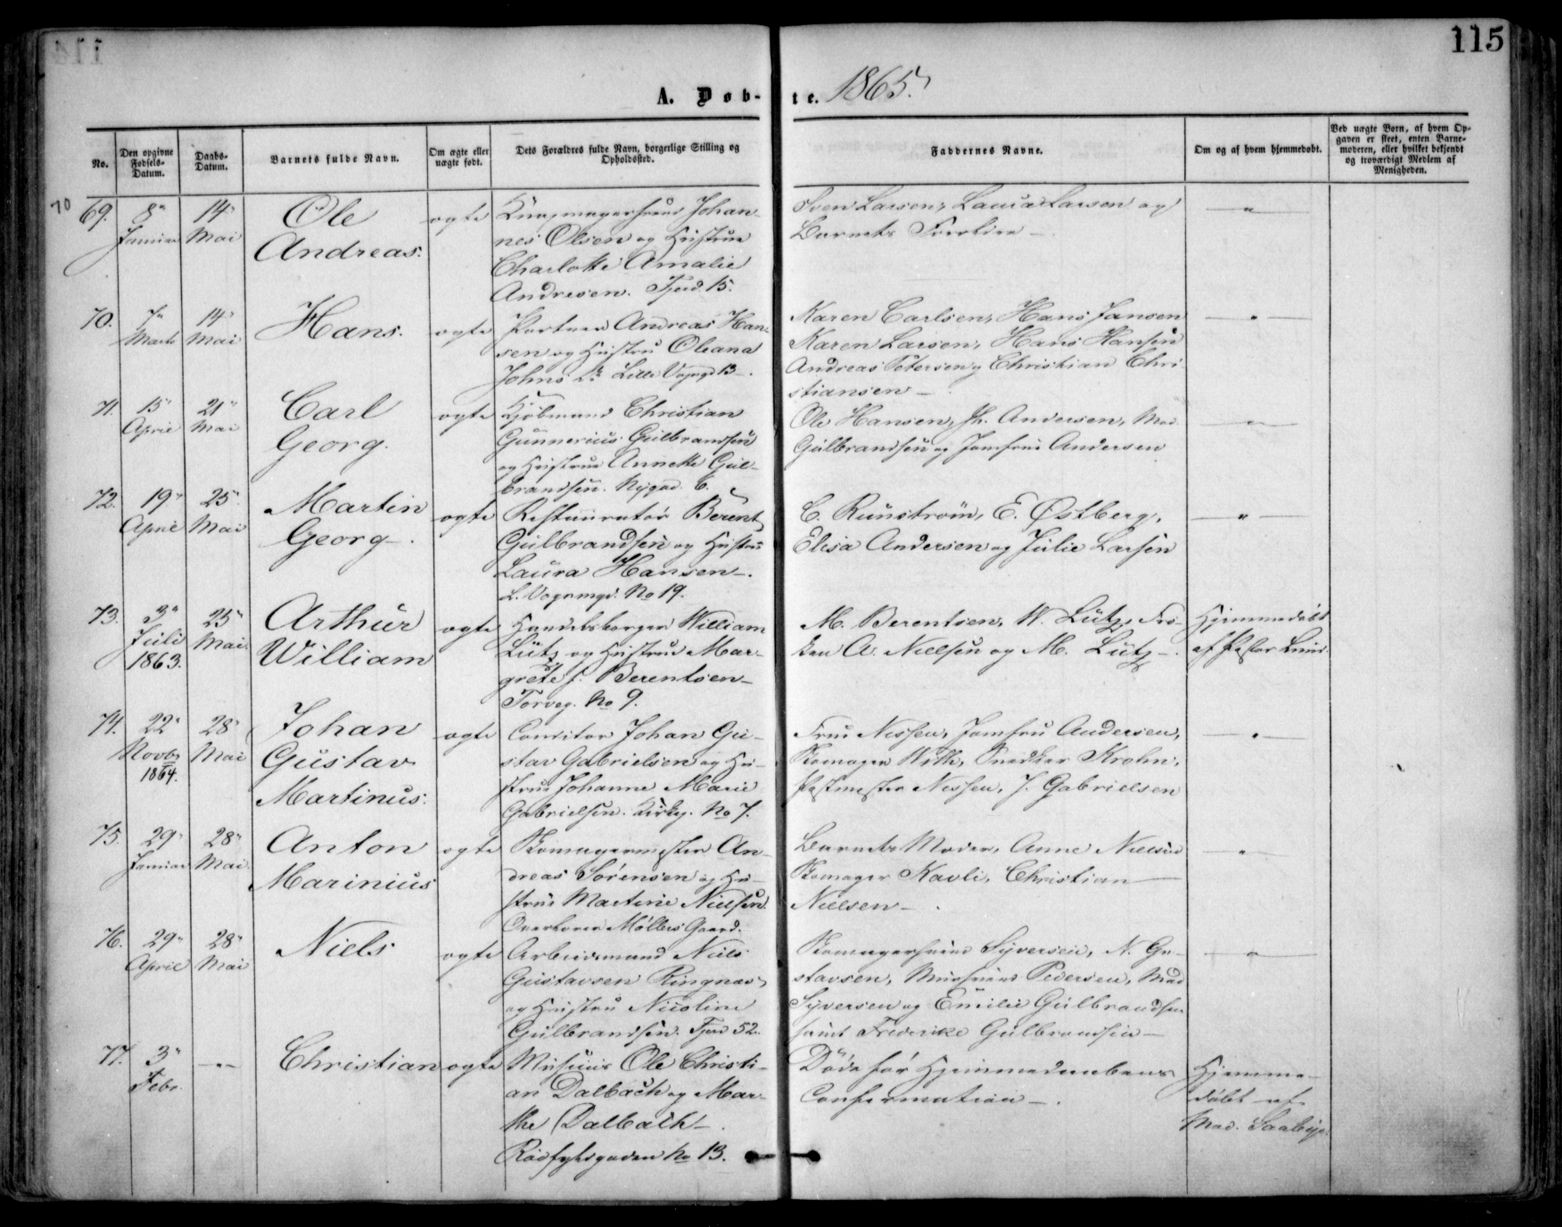 115
A. Døb-te. 1865.
No.
Den opgivne Fødsels-Datum.
Daabs-Datum.
Barnets fulde Navn.
Om ægte eller uægte født.
Dets Forældres fulde Navn, borgerlige Stilling og Opholdssted.
Faddernes Navne.
Om og af hvem hjemmedøbt.
Ved uægte Børn, af hvem Opgaven er skeet, enten Barnemoderen, eller hvilket bekjendt og troværdigt Medlem af Menigheden.
70
69. 8" Januar
14" Mai
Ole
Andreas.
ægte
Johan-
nes Olsen og Hustrue
Charlotte Amalie
Andresen. Fjerd. 15.
Sven Larsen, Laura Larsen og
Barnets Forældre –
70. 7" Marts
14" Mai
Hans.
ægte
Andreas Han-
sen og Hustru Oleana
Johns Dr. Lille Vogngd 13.
Karen Carlsen, Hans Jansen
Karen Larsen, Hans Hansen
Andreas Petersen og Christian Chri
stiansen –
71. 15" April
21" Mai
Carl
Georg.
ægte
Kjøbmand Christian
Gunnerius Gulbrandsen
og Hustrue Annette Gul-
brandsen. Nygad. 6.
Ole Hansen, Jh. Andersen, Mad.
Gulbrandsen og Jomfrue Andersen
72. 19" April
25" Mai
Martin
Georg.
ægte
Restauratør Berent
Gulbrandsen og Hustru
Laura Hansen –.
L. Vogemgd. No 19.
C. Runstrøm, E. Østberg,
Elisa Andersen og Julie Larsen
73. 3" Juli 1863.
25" Mai
Arthur
William
ægte
Handelsborger William
Lütz og Hustrue Mar-
grete f. Berentsen –
Torveg. No 9.
M. Berentsen, W. Lütz, Frø-
ken A. Nielsen og M. Lütz –.
Hjemmedøbt
af Pastor
74. 22" Novbr 1864.
28" Mai
Johan
Gustav
Martinus.
ægte
Conditor Johan Gu-
stav Gabrielsen og Hu-
strue Johanne Marie
Gabrielsen. Kirkg. No 7.
Frue Nissen, Jomfru Andersen,
Skomager Witth, Snedker Krohn,
Postmester Nissen, J. Gabrielsen
75. 29" Januar
28" Mai
Anton
Marinius
ægte
Skomagermester An-
dreas Sørensen og Hu-
strue Martine Nielsen.
Møllers Gaard.
Barnets Moder, Anne Nielsen
Skomager Kavli, Christian
Nielsen –.
76. 29" April
28" Mai
Niels
ægte
Arbeidsmand Niels
Gustavsen Ringnæs
og Hustru Nicoline
Gulbrandsen. Fjerd 52.
Skomagersvend Syversen, N. Gu-
stavsen, Pedersen, Mad
Syversen og Emilie Gulbrandsen
samt Frederike Gulbrandsen –
77. 3" Febr.
–"–
Christian
ægte
Musicus Ole Christi-
an Dalbach og Mar-
the Dalbach –.
Raadhusgaden No 13.
Døde før Hjemmedaabens
Confirmation –.
Hjemme-
døbt af
Mad. Saaby.